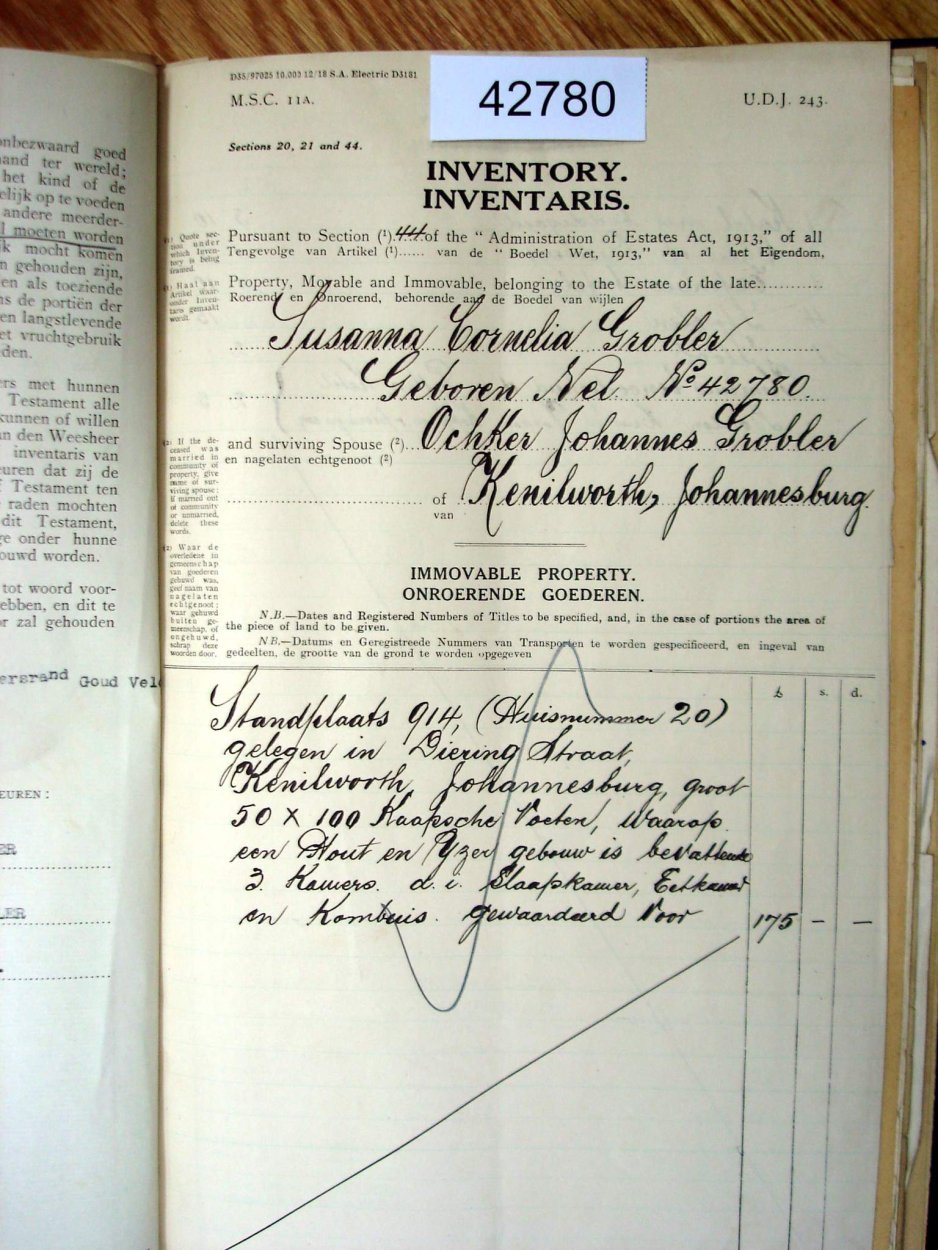 onbezwaard goed
hand ter wereld;
het kind of de
elijk op te voeden
andere meerder-
l moeten worden
jk mocht komen
n gehouden zijn,
en als toeziende
ns de portiën der
en langstlevende
et vruchtgebruik
den.
ers met hunnen
Testament alle
kunnen of willen
an den Weesheer
inventaris van
euren dat zij de
f Testament ten
raden mochten
dit Testament,
ge onder hunne
ouwd worden.
tot woord voor-
ebben, en dit te
or zal gehouden
ersrand Goud Vel
EUREN:
ER
LER
D35/97025 10,000 12/18 S.A. Electric D3181
42780
M.S.C. 11A.
U.D.J. 243.
Sections 20, 21 and 44.
INVENTORY.
INVENTARIS.
(1) Quote sec-
tion under
which Inven-
tory is being
framed.
Pursuant to Section (1) 44 of the " Administration of Estates Act, 1913," of all
Tengevolge van Artikel (1)...... van de " Boedel Wet, 1913," van al het Eigendom,
(1) Haal aan
Artikel waar-
onder Inven-
taris gemaakt
wordt.
Property, Movable and Immovable, belonging to the Estate of the late............
Roerend en Onroerend, behorende aan de Boedel van wijlen
Susanna Cornelia Grobler
Geboren Nel No 42780.
(2) If the de-
ceased was
married in
community of
property, give
name of sur-
viving spouse;
if married out
of community
or unmarried,
delete these
words.
and surviving Spouse (2).. Ochker Johannes Grobler
en nagelaten echtgenoot (2)
of Kenilworth, Johannesburg.
van
(2) Waar de
overledene in
gemeenschap
van goederen
gehuwd was,
geef naam van
nagelaten
echtgenoot;
waar gehuwd
buiten ge-
meenschap, of
ongehuwd,
schrap deze
woorden door.
IMMOVABLE PROPERTY.
ONROERENDE GOEDEREN.
N.B.—Dates and Registered Numbers of Titles to be specified, and, in the case of portions the area of
the piece of land to be given.
NB.—Datums en Geregistreede Nummers van Transporten te worden gespecificeerd, en ingeval van
gedeelten, de grootte van de grond te worden opgegeven
£ s. d.
Standplaats 914, (Huisnummer 20)
gelegen in Diering Straat,
Kenilworth, Johannesburg, groot
50 x 100 Kaapsche Voeten, waarop
een Hout en Yzer gebouw is bevattende
3 Kamers. d. i. Slaapkamer, Eetkamer
en Kombuis. gewaardeerd voor 175 – –